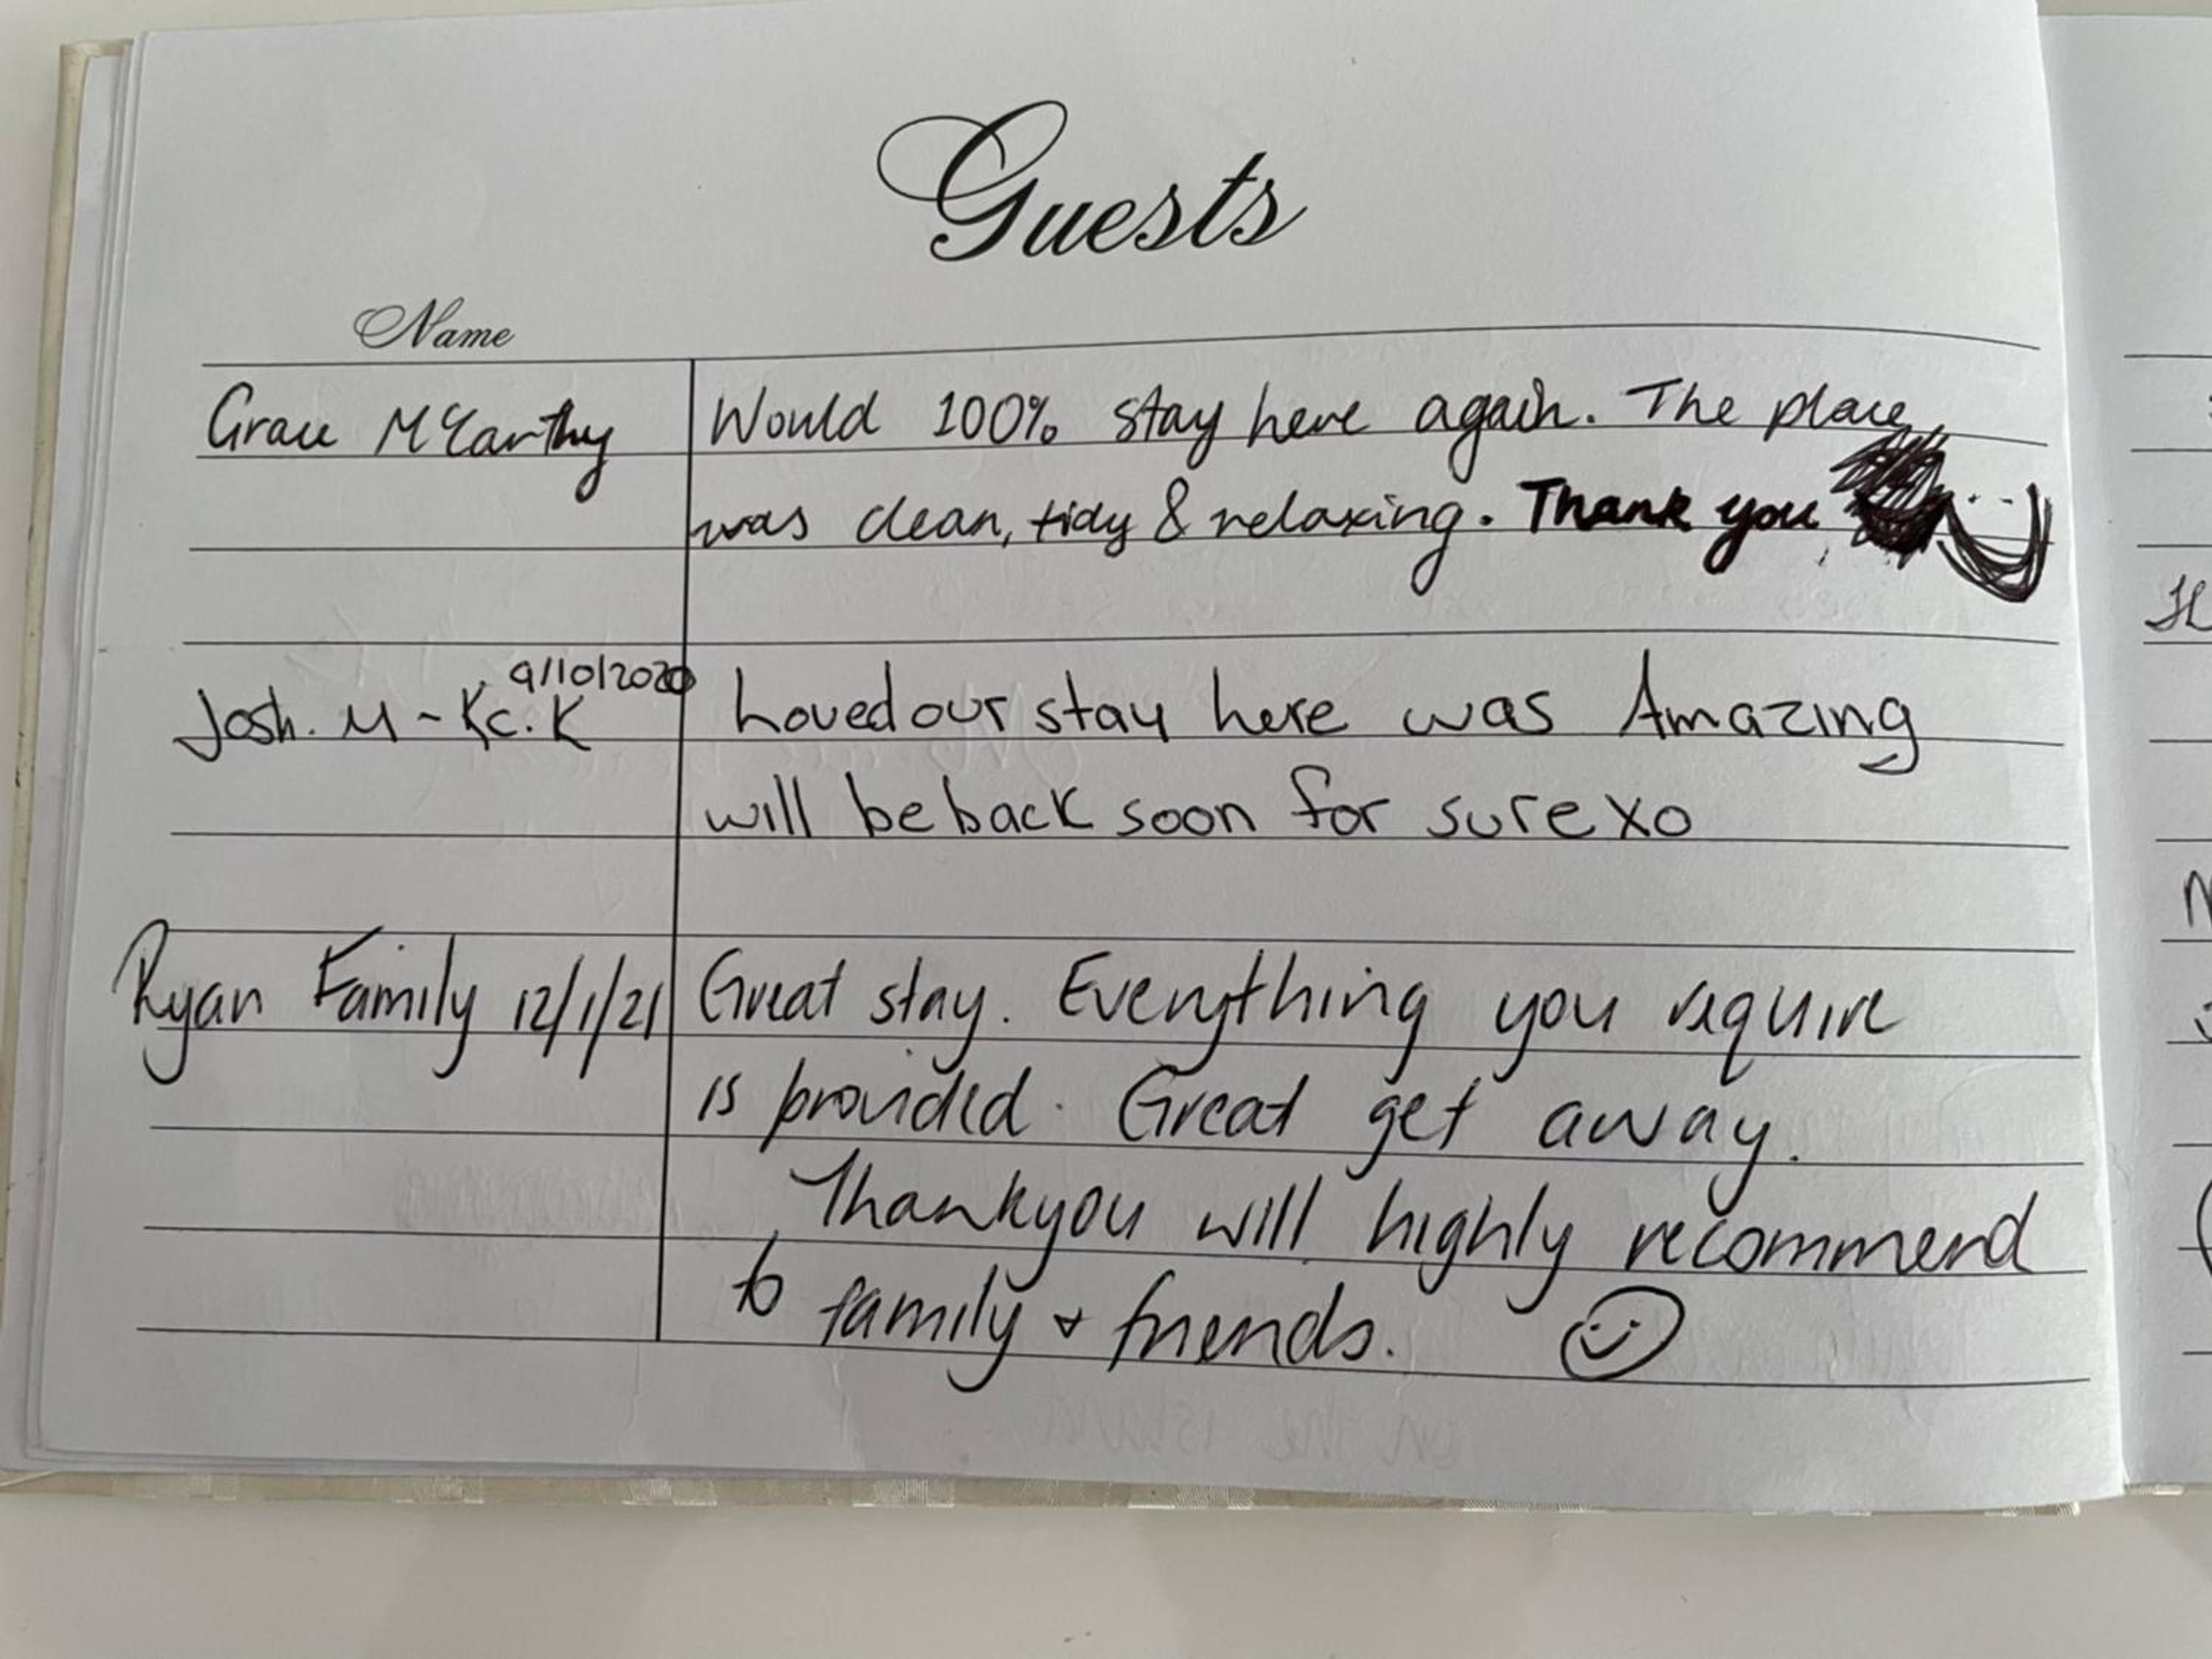 Guests
Name
Grace McCarthy Would 100% stay here again. The place
was clean, tidy & relaxing. Thank you :)
9/10/2020
Josh. M - Kc. K Loved our stay here was Amazing
will be back soon for sure xo
Ryan Family 12/1/21 Great stay. Everything you require
is provided. Great get away.
Thankyou will highly recommend
to family + friends.